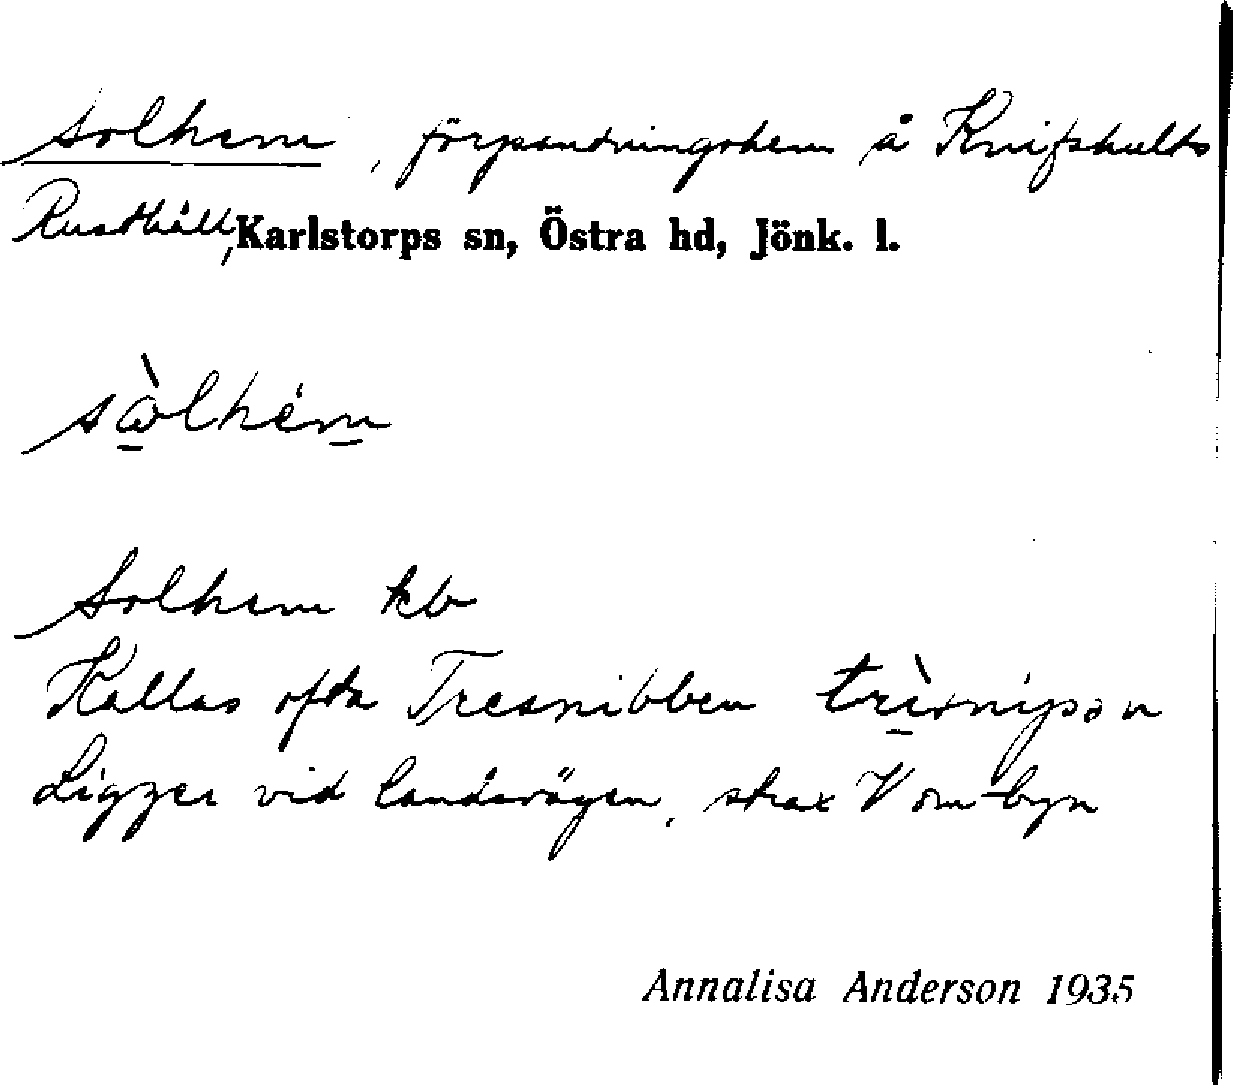 Solhem, förpantningshem å Knifshults
Rusthåll, Karlstorps sn, Östra hd, Jönk. l.
sὼlhém
Solhem kb
Kallas ofta Tresnibben
Ligger vid landsvägen, strax V om byn
Annalisa Anderson 1935